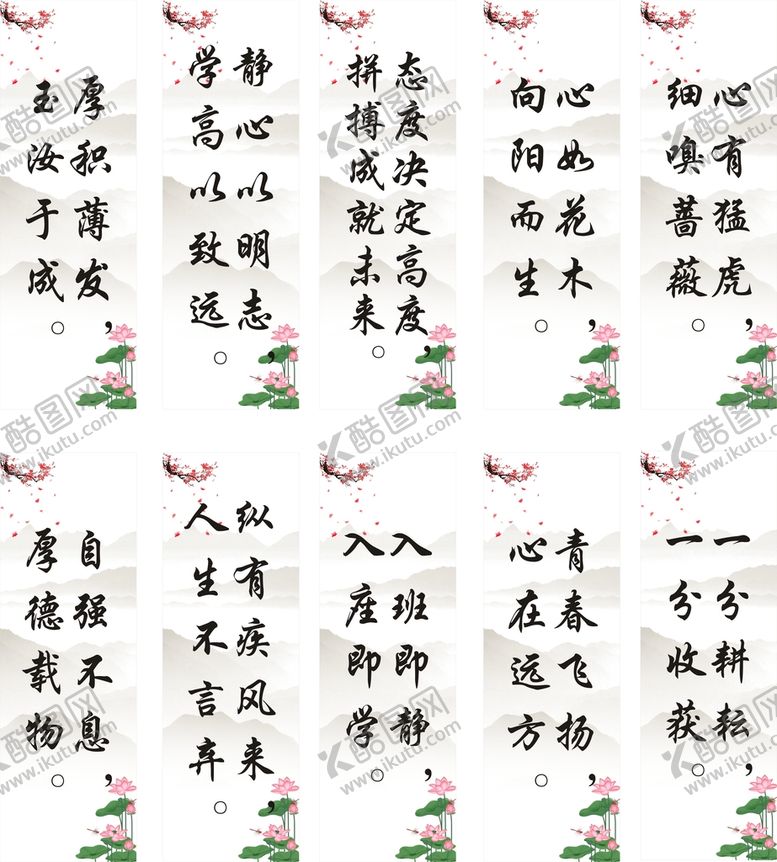 厚积薄发，
玉汝于成。
静心以明志，
学高以致远。
态度决定高度，
拼搏成就未来。
心如花木，
向阳而生。
心有猛虎，
细嗅蔷薇。
自强不息，
厚德载物。
纵有疾风来，
人生不言弃。
入班即静，
入座即学。
青春飞扬，
心在远方。
一分耕耘，
一分收获。
酷图网
www.ikutu.com